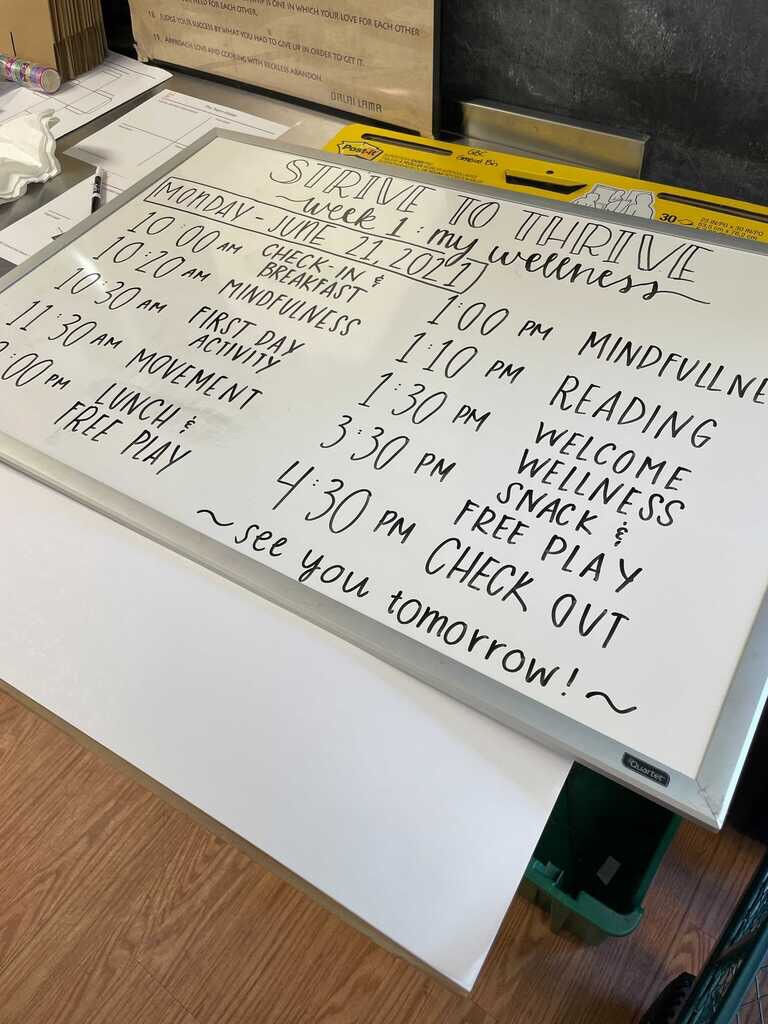 NEED FOR EACH OTHER.
IS ONE IN WHICH YOUR LOVE FOR EACH OTHER
18. JUDGE YOUR SUCCESS BY WHAT YOU HAD TO GIVE UP IN ORDER TO GET IT.
19. APPROACH LOVE AND COOKING WITH RECKLESS ABANDON.
DALAI LAMA
Post-it
30
25 IN/PO x 30 IN/PO
63,5 cm x 76,2 cm
STRIVE TO THRIVE
~week 1: my wellness~
MONDAY - JUNE 21, 2021
10:00 AM CHECK-IN &
BREAKFAST
10:20 AM MINDFULNESS
10:30 AM FIRST DAY
ACTIVITY
11:30 AM MOVEMENT
:00 PM LUNCH &
FREE PLAY
1:00 PM MINDFULLNE
1:10 PM READING
1:30 PM WELCOME
WELLNESS
3:30 PM SNACK &
FREE PLAY
4:30 PM CHECK OUT
~see you tomorrow!~
Quartet